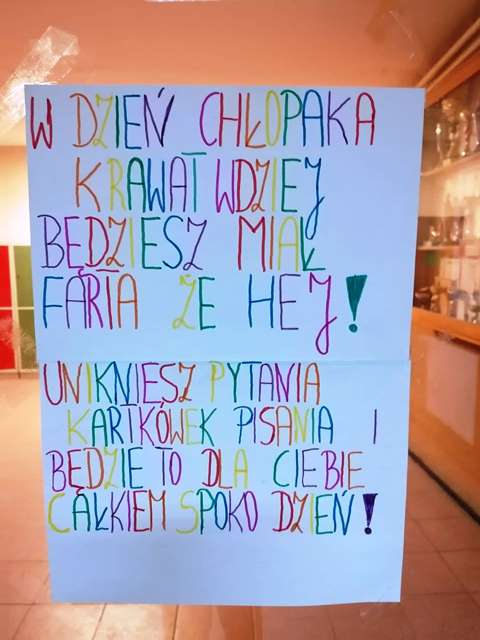 W DZIEŃ CHŁOPAKA
KRAWAT WDZIEJ
BĘDZIESZ MIAŁ
FARTA ŻE HEJ!
UNIKNIESZ PYTANIA
KARTKÓWEK PISANIA I
BĘDZIE TO DLA CIEBIE
CAŁKIEM SPOKO DZIEŃ!